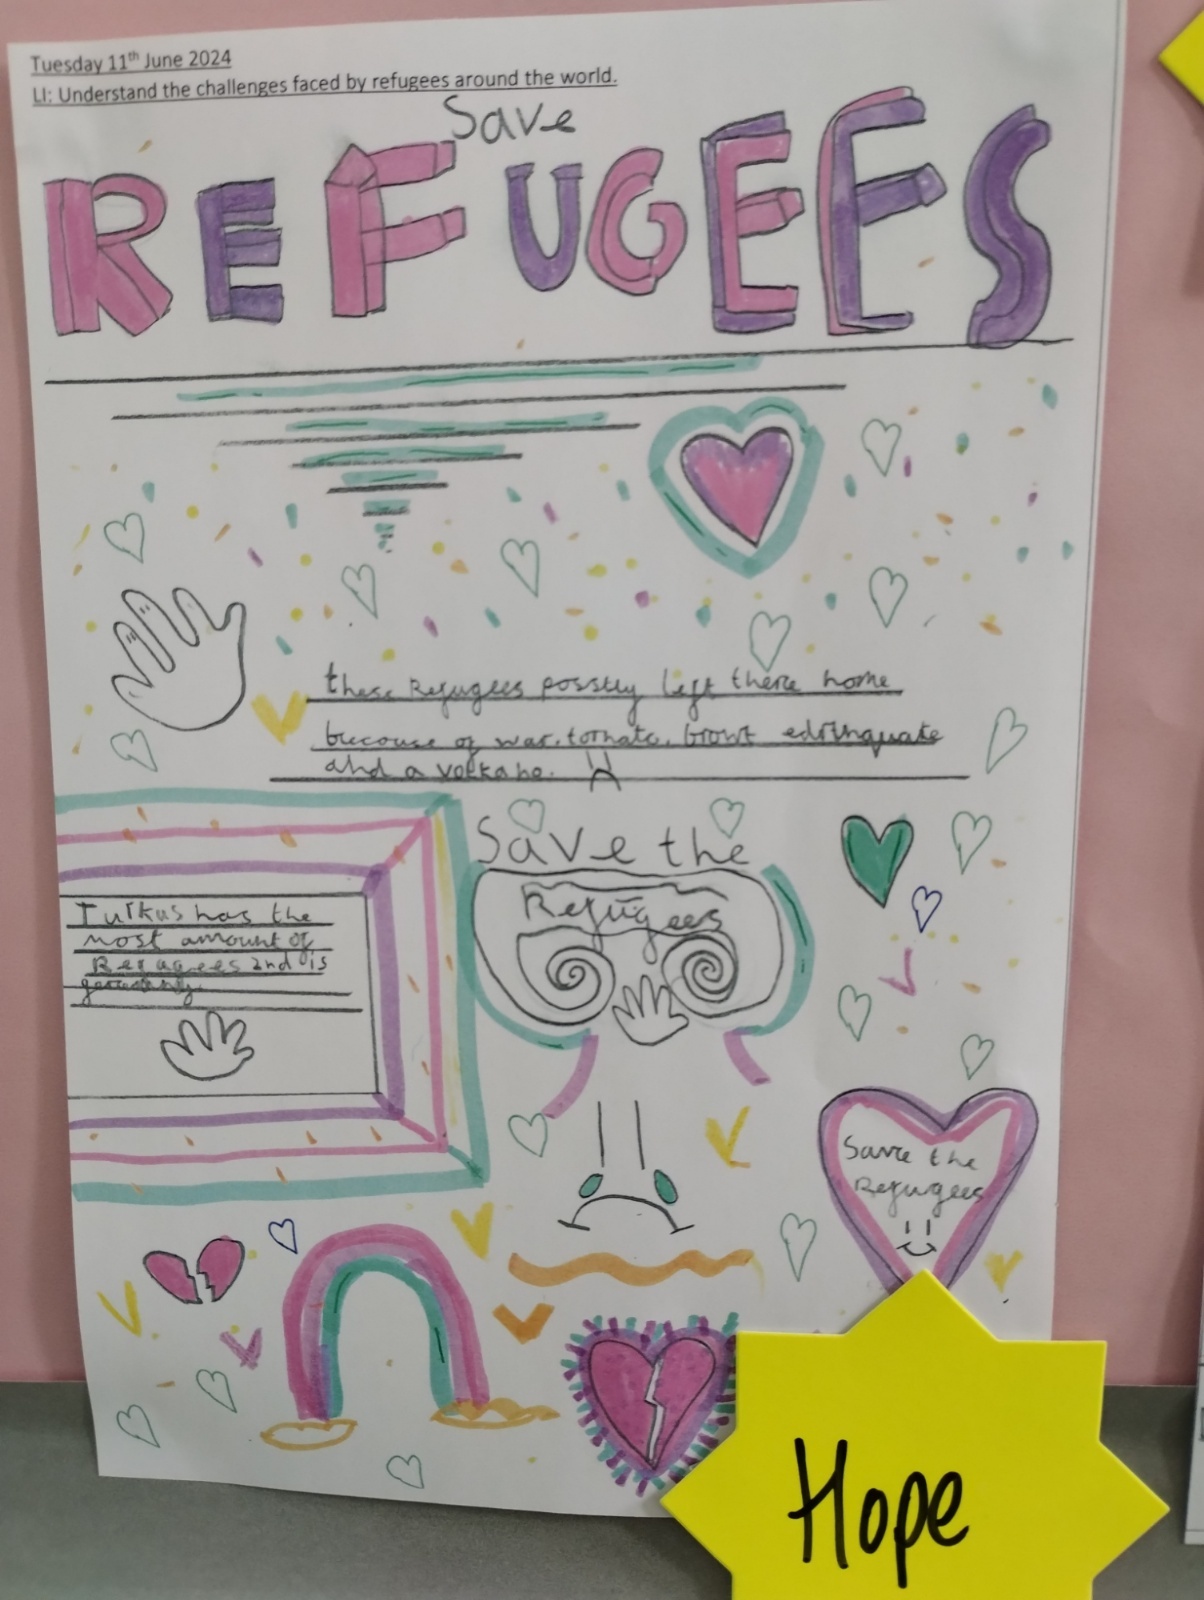 Tuesday 11th June 2024
LI: Understand the challenges faced by refugees around the world.
Save
REFUGEES
these Refugees possbly left there home
because of war, tornato, browt edrthquate
and a volkano.
Save the
Refugees
Turkus has the
most amount of
Refugees 2nd is
germany.
Save the
Refugees
Hope